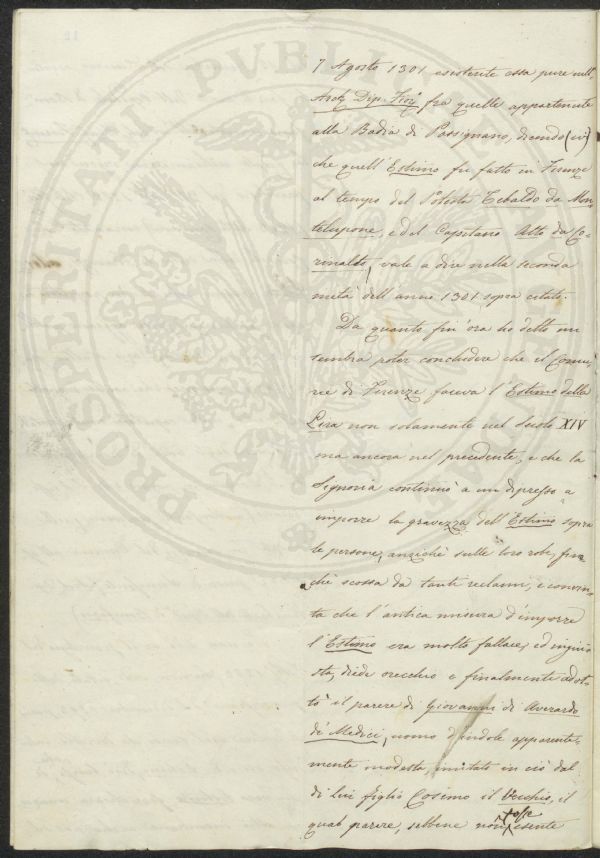 7 Agosto 1301 esistente essa pure nell'
Arch. Dip. Fior.º fra quelle appartenute
alla Badia di Passignano, dicendo (ivi)
che quell'Estimo fu fatto in Firenze
al tempo del Potestà Tebaldo da Mon-
telupone, e del Capitano Atto da Co-
rinaldo, vale a dire nella seconda
metà dell'anno 1301 sopra citato.
Da quanto fin'ora ho detto mi
sembra poter concludere che il Comu-
ne di Firenze faceva l'Estimo della
Lira non solamente nel Secolo XIV
ma ancora nel precedente, e che la
Signoria continuò a un dipresso a
imporre la gravezza dell'Estimo sopra
le persone, anzichè sulle loro robe, fin-
chè scossa da tanti reclami, e convin-
ta che l'antica misura d'imporre
l'Estimo era molto fallace, ed ingiu-
sta, diede orecchio e finalmente adot-
tò il parere di Giovanni di Averardo
de' Medici, uomo d'indole apparente-
mente modesta, imitato in ciò dal
di lui figlio Cosimo il Vecchio, il
qual parere, sebbene non fosse esente
PROSPERITATI PVBLI